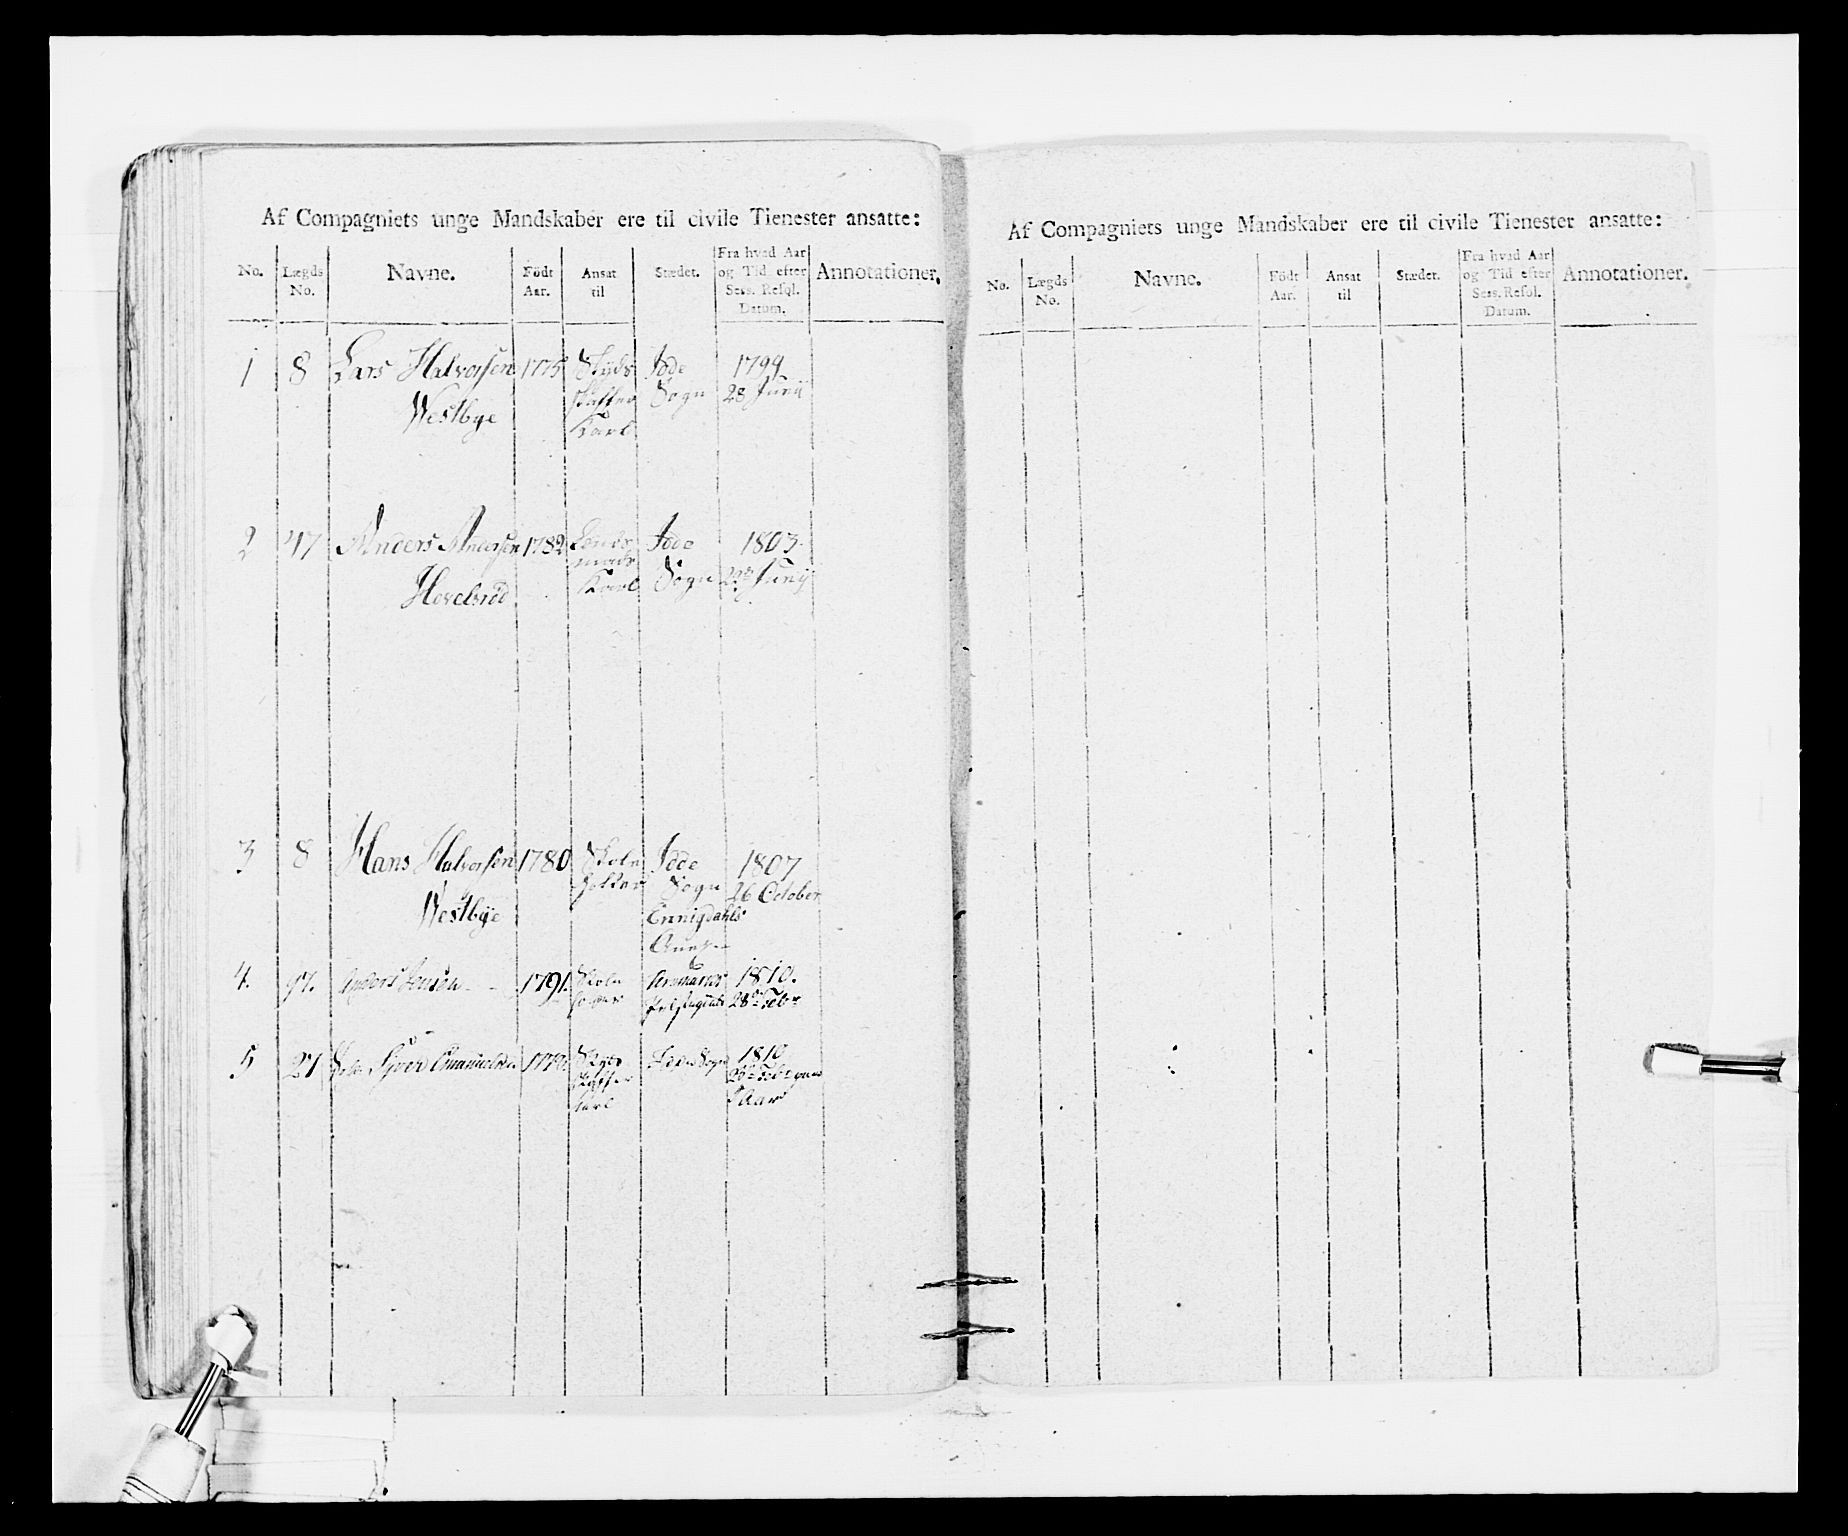 Af Compagniets unge Mandskaber ere til civile Tienester ansatte:
No. Lægds No. Navne. Födt Aar. Ansat til Stædet. Fra hvad Aar og Tid efter Sess. Resol. Datum. Annotationer.
1 8 Lars Halvorsen 1775 Skyds Idde 1799
Westbye skaffer Sogn 28 Junij
Karl
2 47 Anders Andersen 1782 Lends Idde 1803
mands
Hovelsrud Karl Sogn Junij
3 8 Hans Halvorsen 1780 Skole Idde 1807
holder Sogn 26 October
Westbye Ennigdahls
4. 97. Anders Jensen 1791. Skole 1810.
holder 28de Febr
5 21 Syver Skyds Iddes Sogn 1810
skaffer 28de Febr
Karl Aar
Af Compagniets unge Mandskaber ere til civile Tienester ansatte:
No. Lægds No. Navne. Födt Aar. Ansat til Stædet. Fra hvad Aar og Tid efter Sess. Resol. Datum. Annotationer.